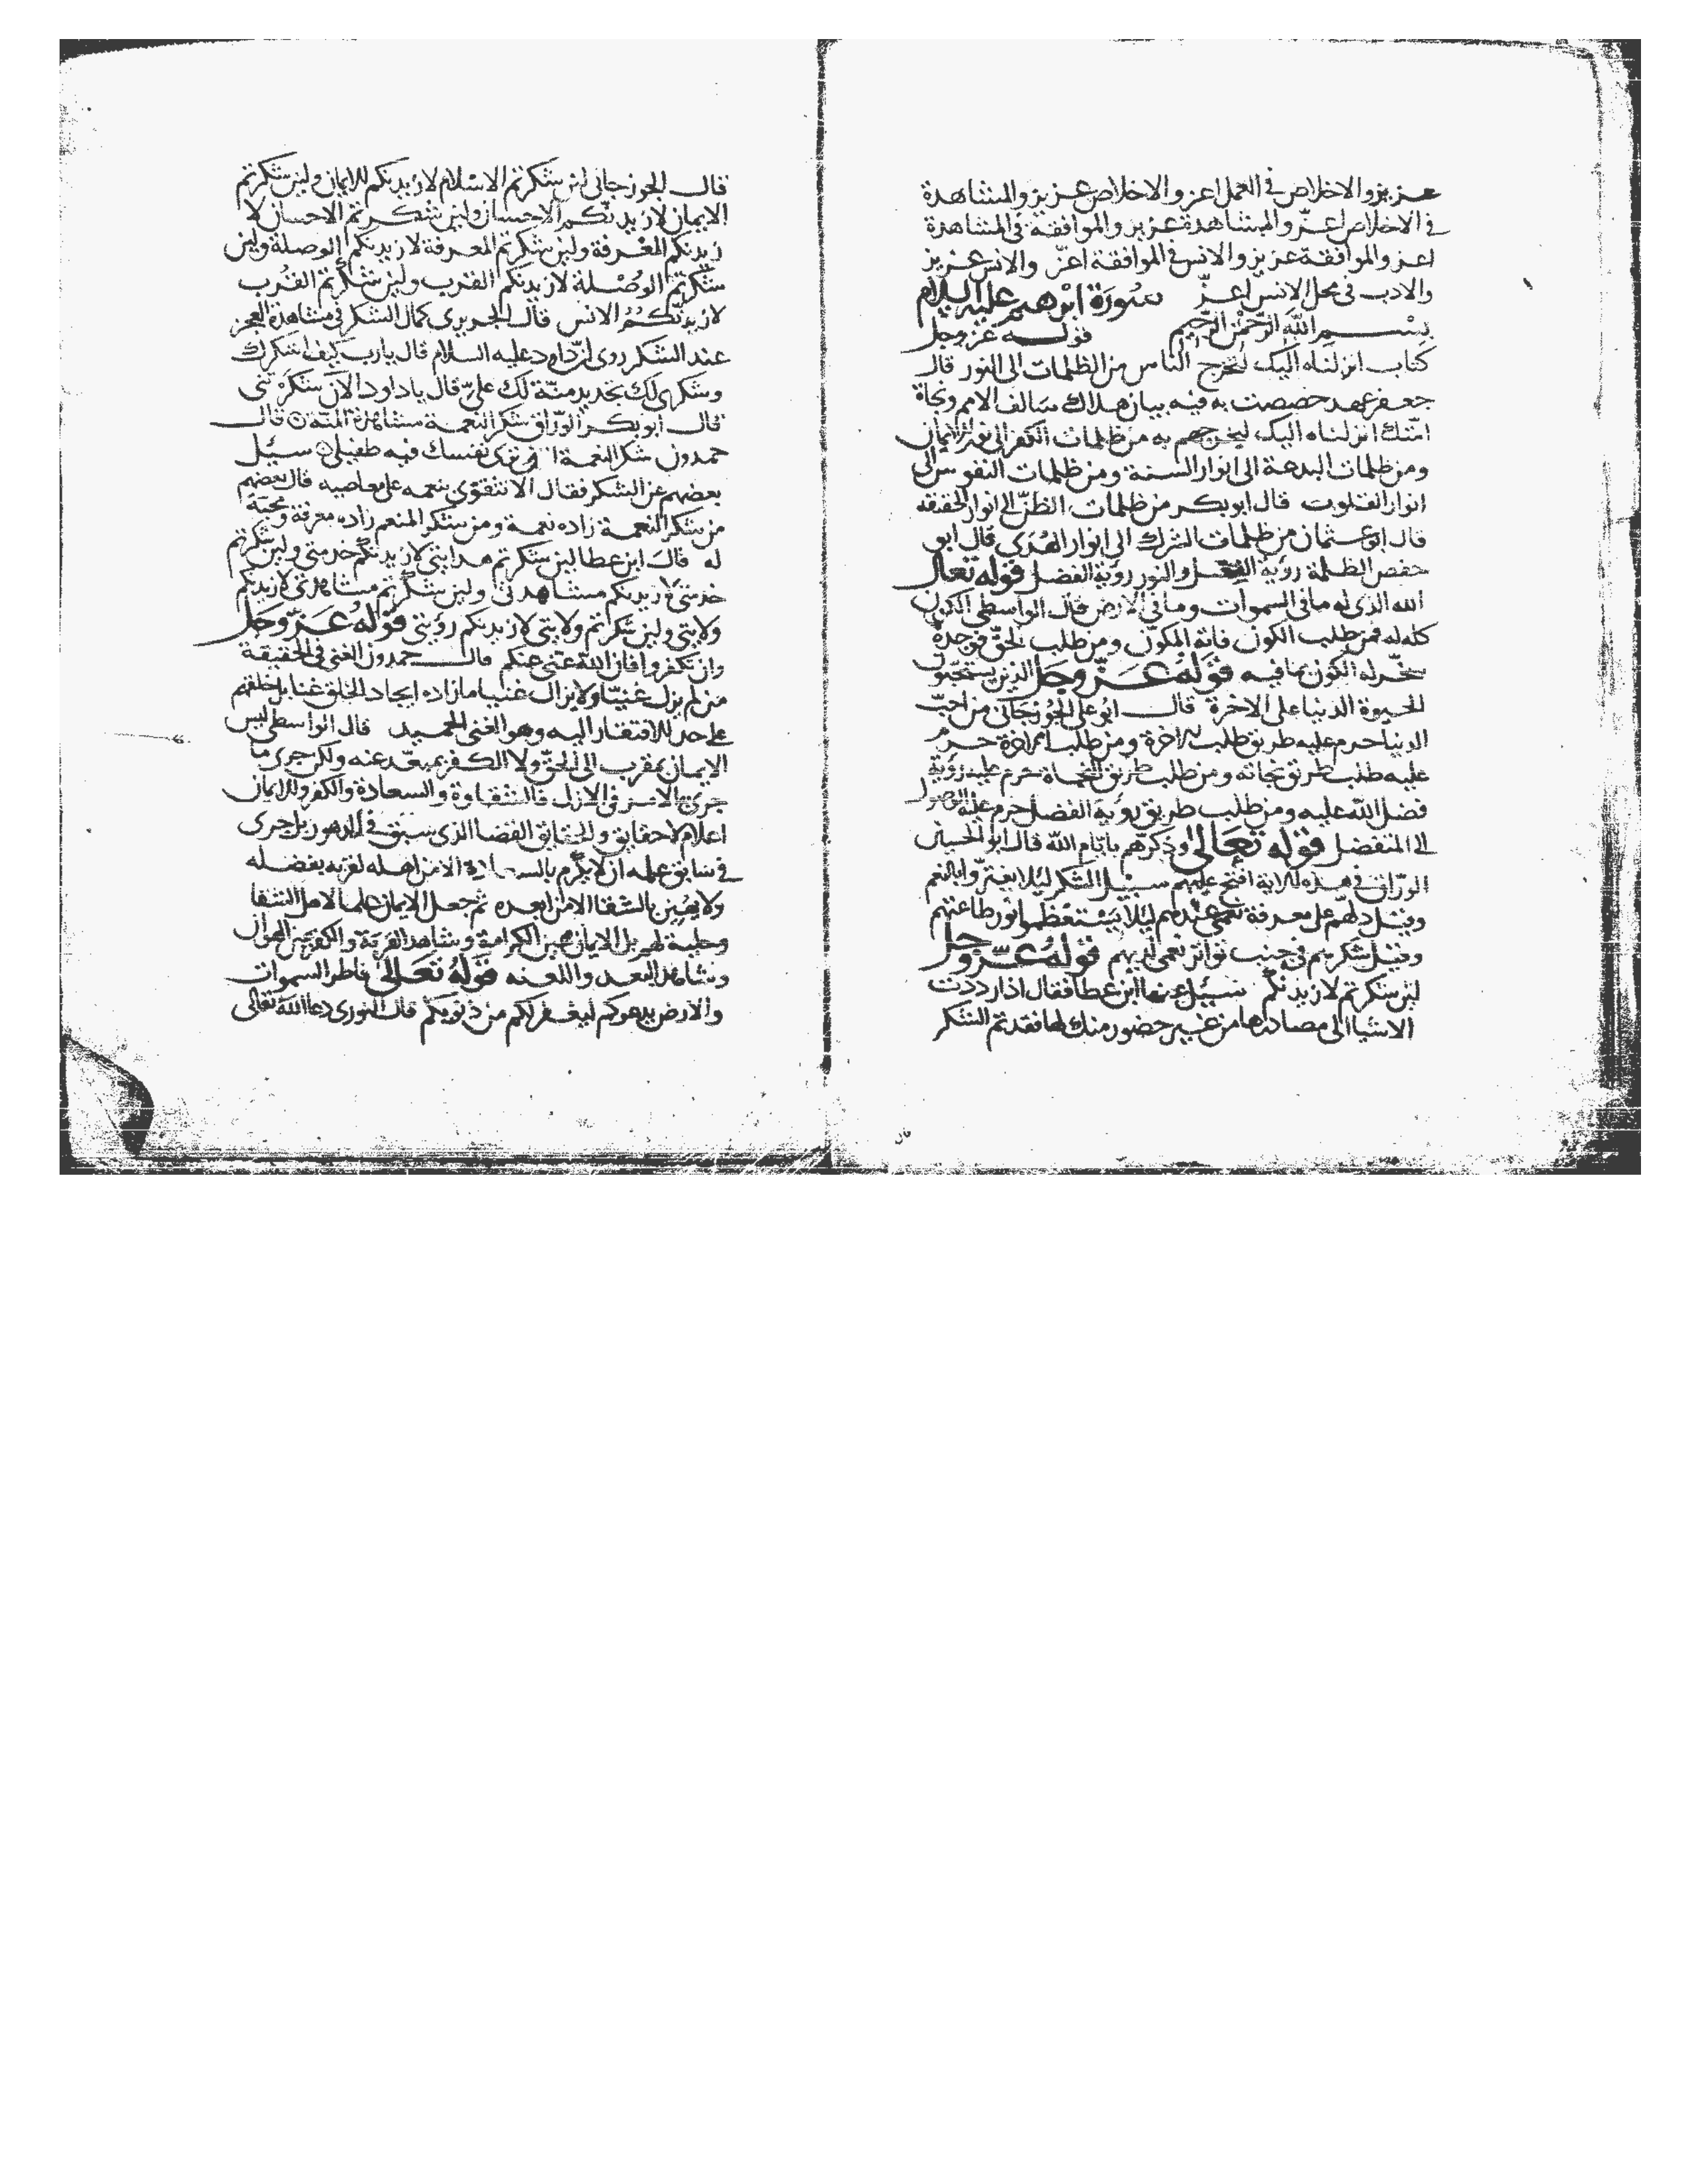 عزيز والاخلاص في العمل اعز والاخلاص عزيز والمشاهدة
في الاخلاص اعزّ والمشاهدة عزيز والموافقة في المشاهدة
اعز والموافقة عزيز والانس في الموافقة اعزّ والانس عزيز
والادب في محل الانس اعزّ سُورَة ابرٰهيم عليه السلام
بِسْم اللّه الرّحمٰن الرّحيم قوله عز وجل
كتاب انزلناه اليك لتخرج الناس من الظلمات الى النور قال
جعفر عهد خصصت به فيه بيان هلاك سالف الامم ونجاة
امّتك انزلناه اليك ليخرجهم به من ظلمات الكفر الى نور الايمان
ومن ظلمات البدعة الى انوار السنة ومن ظلمات النفوس الى
انوار القلوب قال ابو بكر من ظلمات الظنّ الى انوار الحقيقة
قال ابو عثمان من ظلمات الشرك الى انوار الهُدَى قال ابو
حفص الظلمة رؤية الفعل والنور رؤية الفضل قوله تعالى
اللّه الذى له ما في السموات وما في الارض قال الواسطى الكون
كله له فمن طلب الكون فاته المكوّن ومن طلب الحقّ فوجده
سخّر له الكون بما فيه قوله عَزّ وجَل الذين يستحبّون
الحيوة الدنيا على الاخرة قال ابو على الجُوزجانى من احبّ
الدنيا حرم عليه طريق طلب الاخرة ومن طلب الاخرة حرم
عليه طلب طريق نجاته ومن طلب طريق النجاة حرم عليه رؤية
فضل اللّه عليه ومن طلب طريق رؤية الفضل حرم عليه الوصول
الى المتفضل قوله تعَالى وذكّرهم بايّام اللّه قال ابو الحسين
الورّاق في هذه الاية افتح عليهم سبيل الشكر ليلا يغترّوا بالنعم
وقيل دلّهم على معرفة نعمى عندهم ليلا يستعظموا نور طاعتهم
وقيل شكرهم في جنب تواتر نعمى لديهم قولهُ عزّ وجل
لين شكرتم لازيدنكم سُيل عنها ابن عطا فقال اذا رددت
الاشيا الى مصادرها من غير حضور منك لها فقد تم الشكر
قال الجوزجانى لين شكرتم الاسلام لازيدنكم للايمان ولين شكرتم
الايمان لازيدنّكم الاحسان ولين شكرتم الاحسان لا
زيدنكم المعرفة ولين شكرتم المعرفة لازيدنكم الوصلة ولين
شكرتم الوُصْلة لازيدنكم القرب ولين شكرتم القُرب
لازيدنّكُم الانس قال الجريرى كمال الشكر في مشاهدة العجز
عند الشكر روى ان داود عليه السلام قال يا رب كيف اشكرك
وشكرى لك تجديد منّة لك علىّ قال يا داود الآن شكرْتنى
قال ابو بكر الورّاق شكر النعمة مشاهدة المنّة قال
حمدون شكر النعمة ان ترى نفسك فيه طفيلى سئيل
بعضهم عن الشكر فقال الا تتقوّى بنعمه على معاصيه قال بعضهم
من شكر النعمة زاده نعمة ومن شكر المنعم زاده معرفة ومحبّة
له قال ابن عطا لين شكرتم هدايتى لازيدنكم خدمتى ولين شكرتم
خدمتى لازيدنكم مشاهدتى ولين شكرتم مشاهدتى لازيدنكم
ولايتى ولين شكرتم ولايتى لازيدنكم رؤيتى قولهُ عَزّ وجَل
وان تكفروا فان اللّه غنى عنكم قال حمدون الغنى في الحقيقة
من لم يزل غنيّا ولا يزال غنيا ما زاده ايجاد الخلق غنا بل خلقهم
على حد الافتقار اليه وهو الغنى الحميد قال الواسطى ليس
الايمان بمقرب الى الحقّ ولا الكفر بمبعّد عنه ولكن جرى ما
جرى به الامر في الازل فالشقاوة والسعادة والكفر والايمان
اعلام لا حقايق والحقايق القضا الذى سبق في الدهور بل جرى
في سابق علمه ان لا يكرم بالسعادة الا من اهله لقربه بفضله
ولا يهين بالشقا الا من ابعده ثم جعل الايمان علما لاهل الشقا
وحلية لهم بل الايمان عين الكرامة وشاهد القربة والكفر عين الهوان
وشاهد البعد واللعنه قولهُ تعَالى فاطر السموات
والارض يدعوكم ليغفر لكم من ذنوبكم قال النورى دعا اللّه تعالى